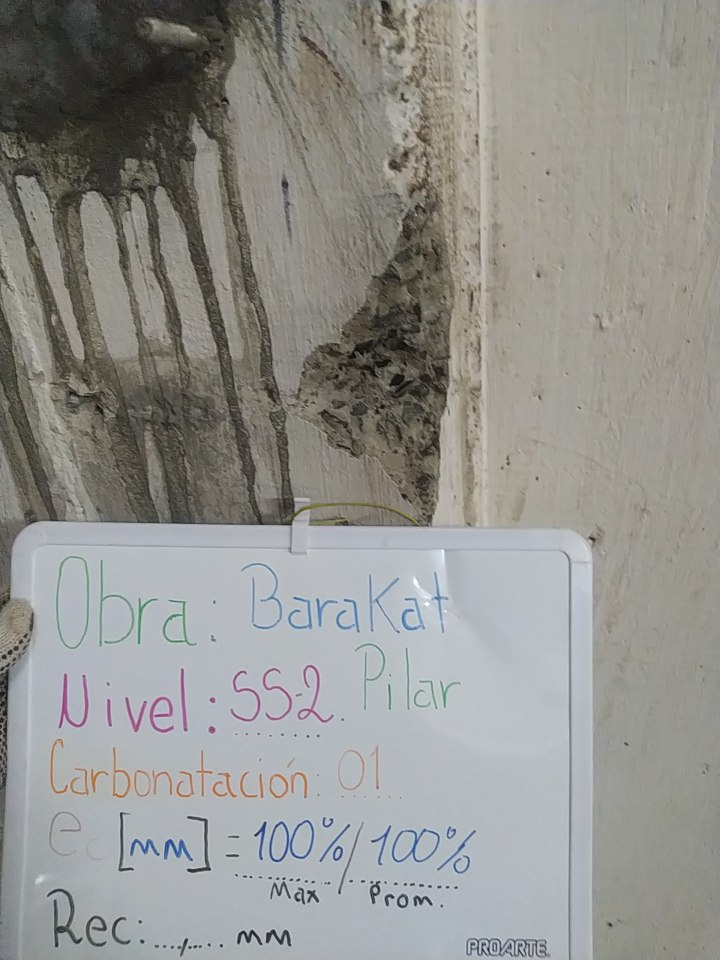 Obra: Barakat
Nivel: SS-2. Pilar
Carbonatación: 01
ec [mm] = 100% / 100%
Max / Prom.
Rec: ...,... mm
PROARTE